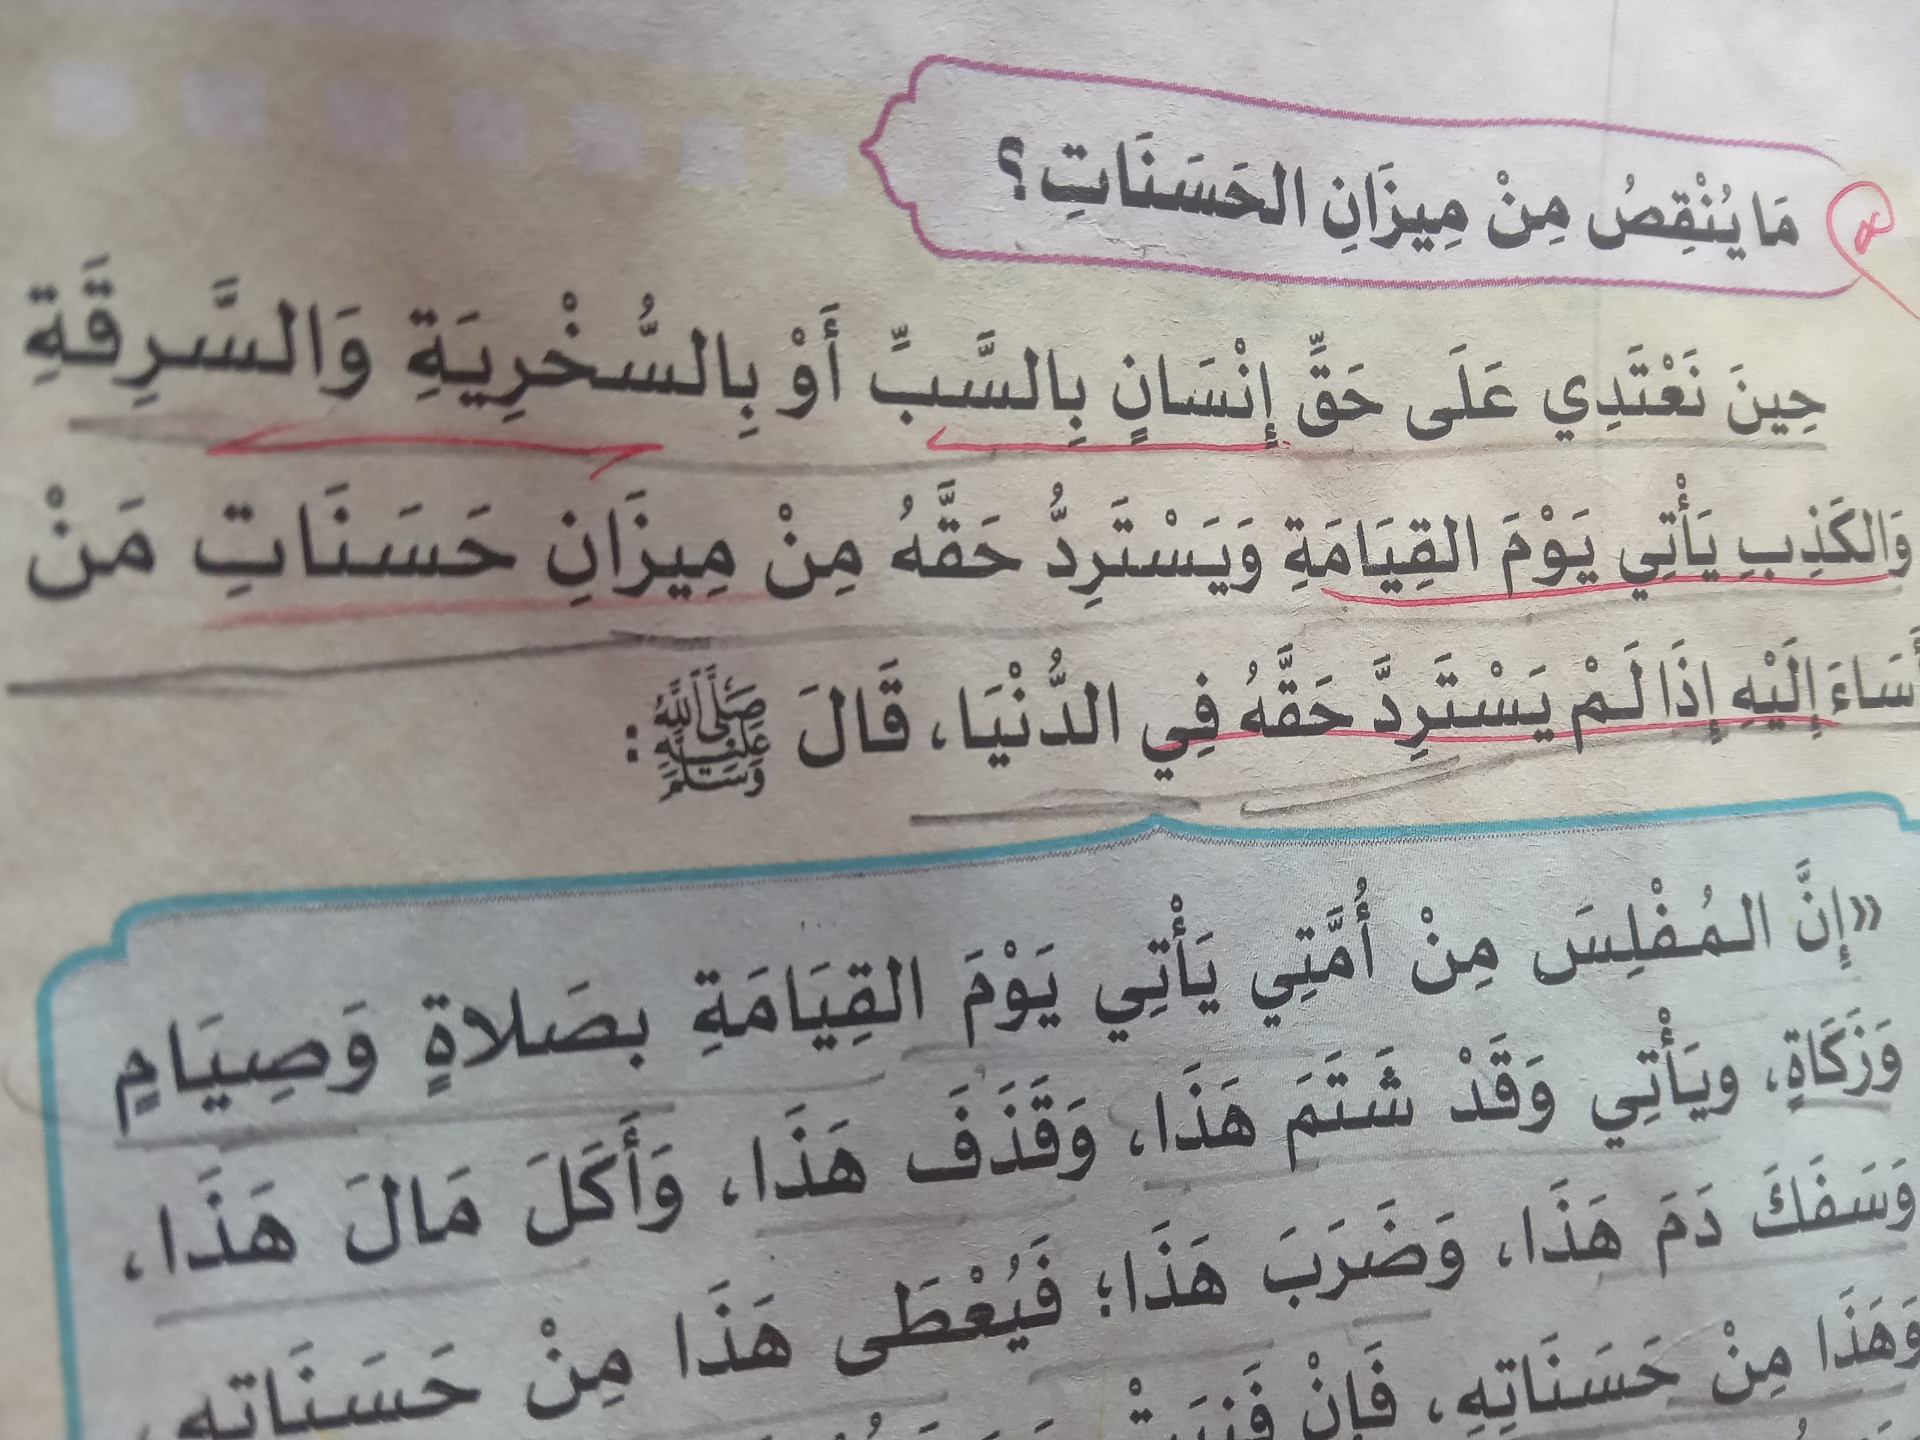 مَا يُنْقِصُ مِنْ مِيزَانِ الحَسَنَاتِ؟
حِينَ نَعْتَدِي عَلَى حَقِّ إِنْسَانٍ بِالسَّبِّ أَوْ بِالسُّخْرِيَةِ وَالسَّرِقَةِ
وَالكَذِبِ يَأْتِي يَوْمَ القِيَامَةِ وَيَسْتَرِدُّ حَقَّهُ مِنْ مِيزَانِ حَسَنَاتِ مَنْ
أَسَاءَ إِلَيْهِ إِذَا لَمْ يَسْتَرِدَّ حَقَّهُ فِي الدُّنْيَا، قَالَ ﷺ:
«إِنَّ المُفْلِسَ مِنْ أُمَّتِي يَأْتِي يَوْمَ القِيَامَةِ بصَلاةٍ وَصِيَامٍ
وَزَكَاةٍ، ويَأْتِي وَقَدْ شَتَمَ هَذَا، وَقَذَفَ هَذَا، وَأَكَلَ مَالَ هَذَا،
وَسَفَكَ دَمَ هَذَا، وَضَرَبَ هَذَا؛ فَيُعْطَى هَذَا مِنْ حَسَنَاتِهِ،
وَهَذَا مِنْ حَسَنَاتِهِ، فَإِنْ فَنِيَتْ